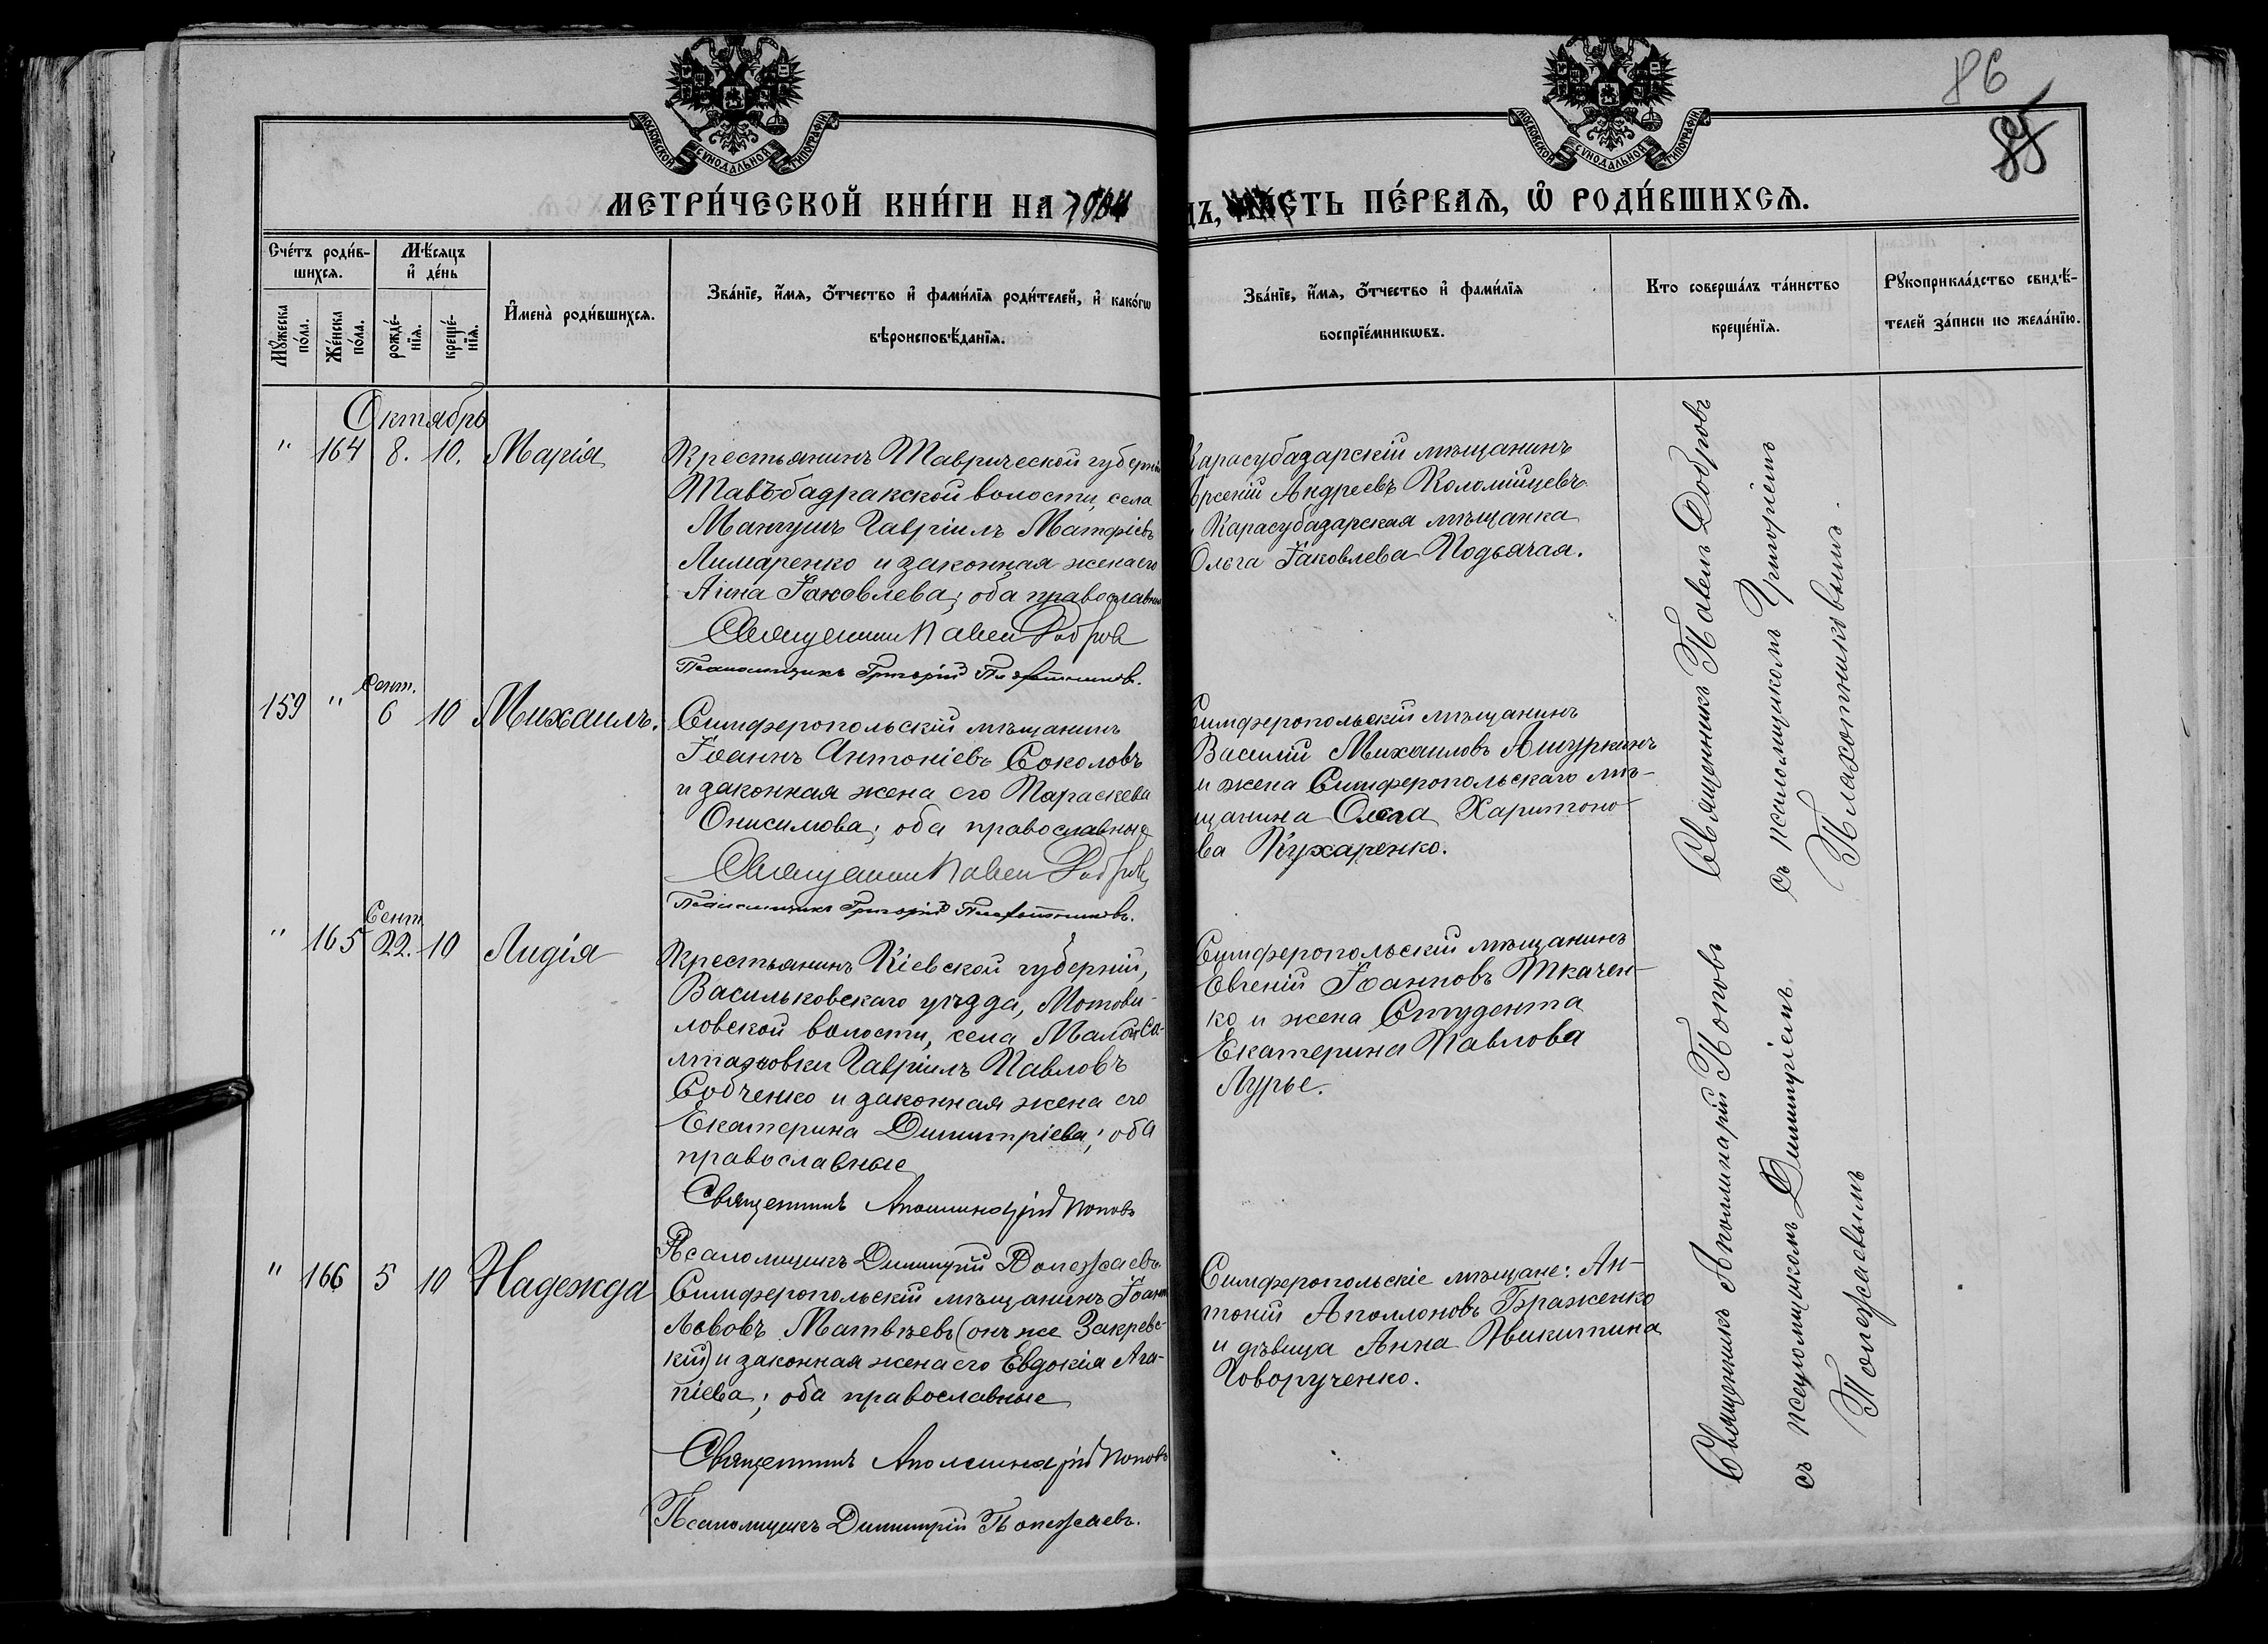 86
85
МОСКОВСКОЙ СѴНОДАЛЬНОЙ ТИПОГРАФІИ
МОСКОВСКОЙ СѴНОДАЛЬНОЙ ТИПОГРАФІИ
МЕТРИ́ЧЕСКОЙ КНИ́ГИ НА 1904
ДЪ, ЧАСТЬ ПЕ́РВАѦ, Ѡ҆ РОДИ́ВШИХСѦ.
Сче́тъ роди́в-
шихсѧ.
Мѣ́сѧцъ
и҆ де́нь
Мꙋ́жеска
по́ла.
Же́нска
по́ла.
рожде́-
нїѧ.
креще́-
нїѧ.
И҆мена̀ роди́вшихсѧ.
Зва́нїе, и҆́мѧ, ѻ҆́тчество и҆ фами́лїѧ роди́телей, и҆ како́гѡ
вѣроисповѣ́данїѧ.
Зва́нїе, и҆́мѧ, ѻ҆́тчество и҆ фами́лїѧ
воспрїе́мникѡвъ.
Кто соверша́лъ та́инство
креще́нїѧ.
Рꙋкоприкла́дство свидѣ́-
телей за́писи по жела́нїю.
Октябрь
" 164 8. 10. Марія
Крестьянинъ Таврической губерніи
Тавъ-бадракской волости, села
Мангушъ Гавріилъ Матфіевъ
Лимаренко и законная жена его
Анна Іаковлева; оба православные
Священникъ Павелъ Добровъ
Псаломщикъ Григорій Плахотниковъ.
Карасубазарскій мѣщанинъ
Арсеній Андреевъ Коломійцевъ
и Карасубазарская мѣщанка
Ольга Іаковлева Подьячая.
Священникъ Павелъ Добровъ
съ псаломщикомъ Григоріемъ
Плахотниковымъ.
159 " Сент. 6 10 Михаилъ.
Симферопольскій мѣщанинъ
Іоаннъ Антоніевъ Соколовъ
и законная жена его Параскева
Онисимова; оба православные
Священникъ Павелъ Добровъ
Псаломщикъ Григорій Плахотниковъ.
Симферопольскій мѣщанинъ
Василий Михаиловъ Ашуркинъ
и жена Симферопольскаго мѣ-
щанина Ольга Харитоно-
ва Кухаренко.
" 165 Сент. 22. 10 Лидія
Крестьянинъ Кіевской губерніи,
Васильковскаго уѣзда, Мотови-
ловской волости, села Малой Са-
лтановки Гавріилъ Павловъ
Собченко и законная жена его
Екатерина Димитріева; оба
православные
Священникъ Аполинарій Поповъ
Псаломщикъ Димитрій Полежаевъ.
Симферопольскій мѣщанинъ
Евгеній Іоанновъ Ткачен-
ко и жена Студента
Екатерина Павлова
Лурье.
Священникъ Аполинарій Поповъ
съ псаломщикомъ Димитріемъ
Полежаевымъ
" 166 5 10 Надежда
Симферопольскій мѣщанинъ Іоаннъ
Львовъ Матвѣевъ (онъ же Закревс-
кій) и законная жена его Евдокія Ага-
піева; оба православные
Священникъ Аполинарій Поповъ
Псаломщикъ Димитрій Полежаевъ.
Симферопольскіе мѣщане: Ан-
тоній Аполлоновъ Браженко
и дѣвица Анна Никитина
Говорученко.